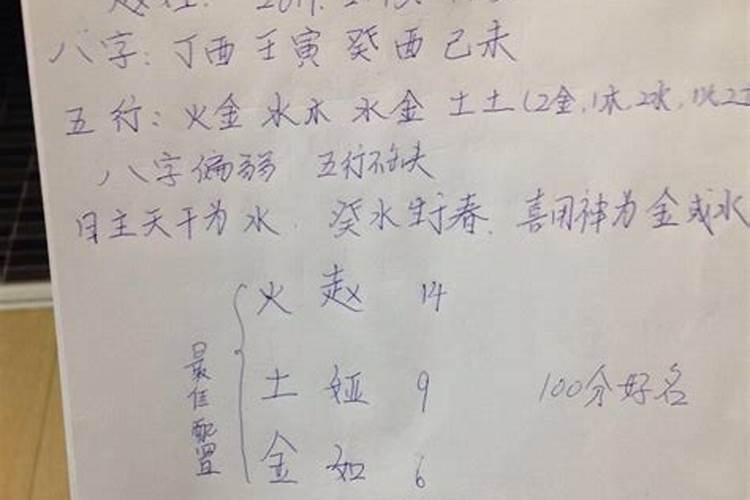 八字：丁酉 壬寅 癸酉 己未
五行：火金 水木 水金 土土（2金，1木，2水，1火2土
八字偏弱 五行不缺
日主天干为水，癸水生于春，喜用神为金或水
火 赵 14
土 娅 9
金 如 6
最佳配置
100分好名